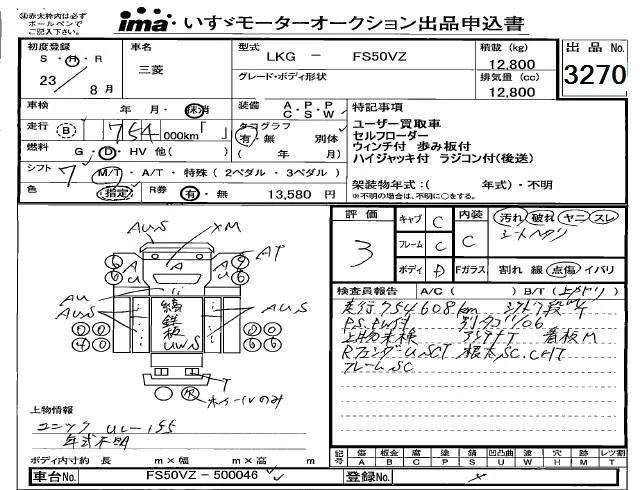 ※赤太枠内は必ず
ボールペンで
ご記入下さい。
ima・いすゞモーターオークション出品申込書
初度登録
S・H・R
23
8月
車名
三菱
型式
LKG － FS50VZ
グレード・ボディ形状
積載 (kg)
12,800
排気量 (cc)
12,800
出品 No.
3270
車検
年 月・抹消
装備 A・P・P
C・S・W
走行 (B) 754 000km「 」
タコグラフ
有・無 別体
( 年 月)
燃料 G・D・HV 他( )
シフト 7 M/T・A/T・特殊 (2ペダル・3ペダル)
色 指定 R券 有・無 13,580 円
特記事項
ユーザー買取車
セルフローダー
ウィンチ付 歩み板付
ハイジャッキ付 ラジコン付(後送)
架装物年式：( 年式)・不明
※不明の場合は、不明に○をする。
評価
3
キャブ C
フレーム C
ボディ D
内装 C
汚れ 破れ ヤニ スレ
シートヘタリ
Fガラス 割れ 線 点傷 イバリ
検査員報告 A/C ( ) B/T (上カドリ)
走行754608km シフト7段
P.S. PW付 別タコ1106
上物未検 アシアトT 看板M
RフェンダーUSCT 根太SC.CHT
フレームSC
AUS
XM
A
A
U
A
U
AT
AU
AUS
AUS
縞
鉄
板
UWS
T
ホイールのみ
上物情報
ユニック UL-155
年式不明
ボディ内寸約 長 m×幅 m×高 m
記号
傷 板金 腐 塗 錆 凹凸曲 波 穴 目 レツ割
A B C P S U W H M T
車台No. FS50VZ－500046
登録No.